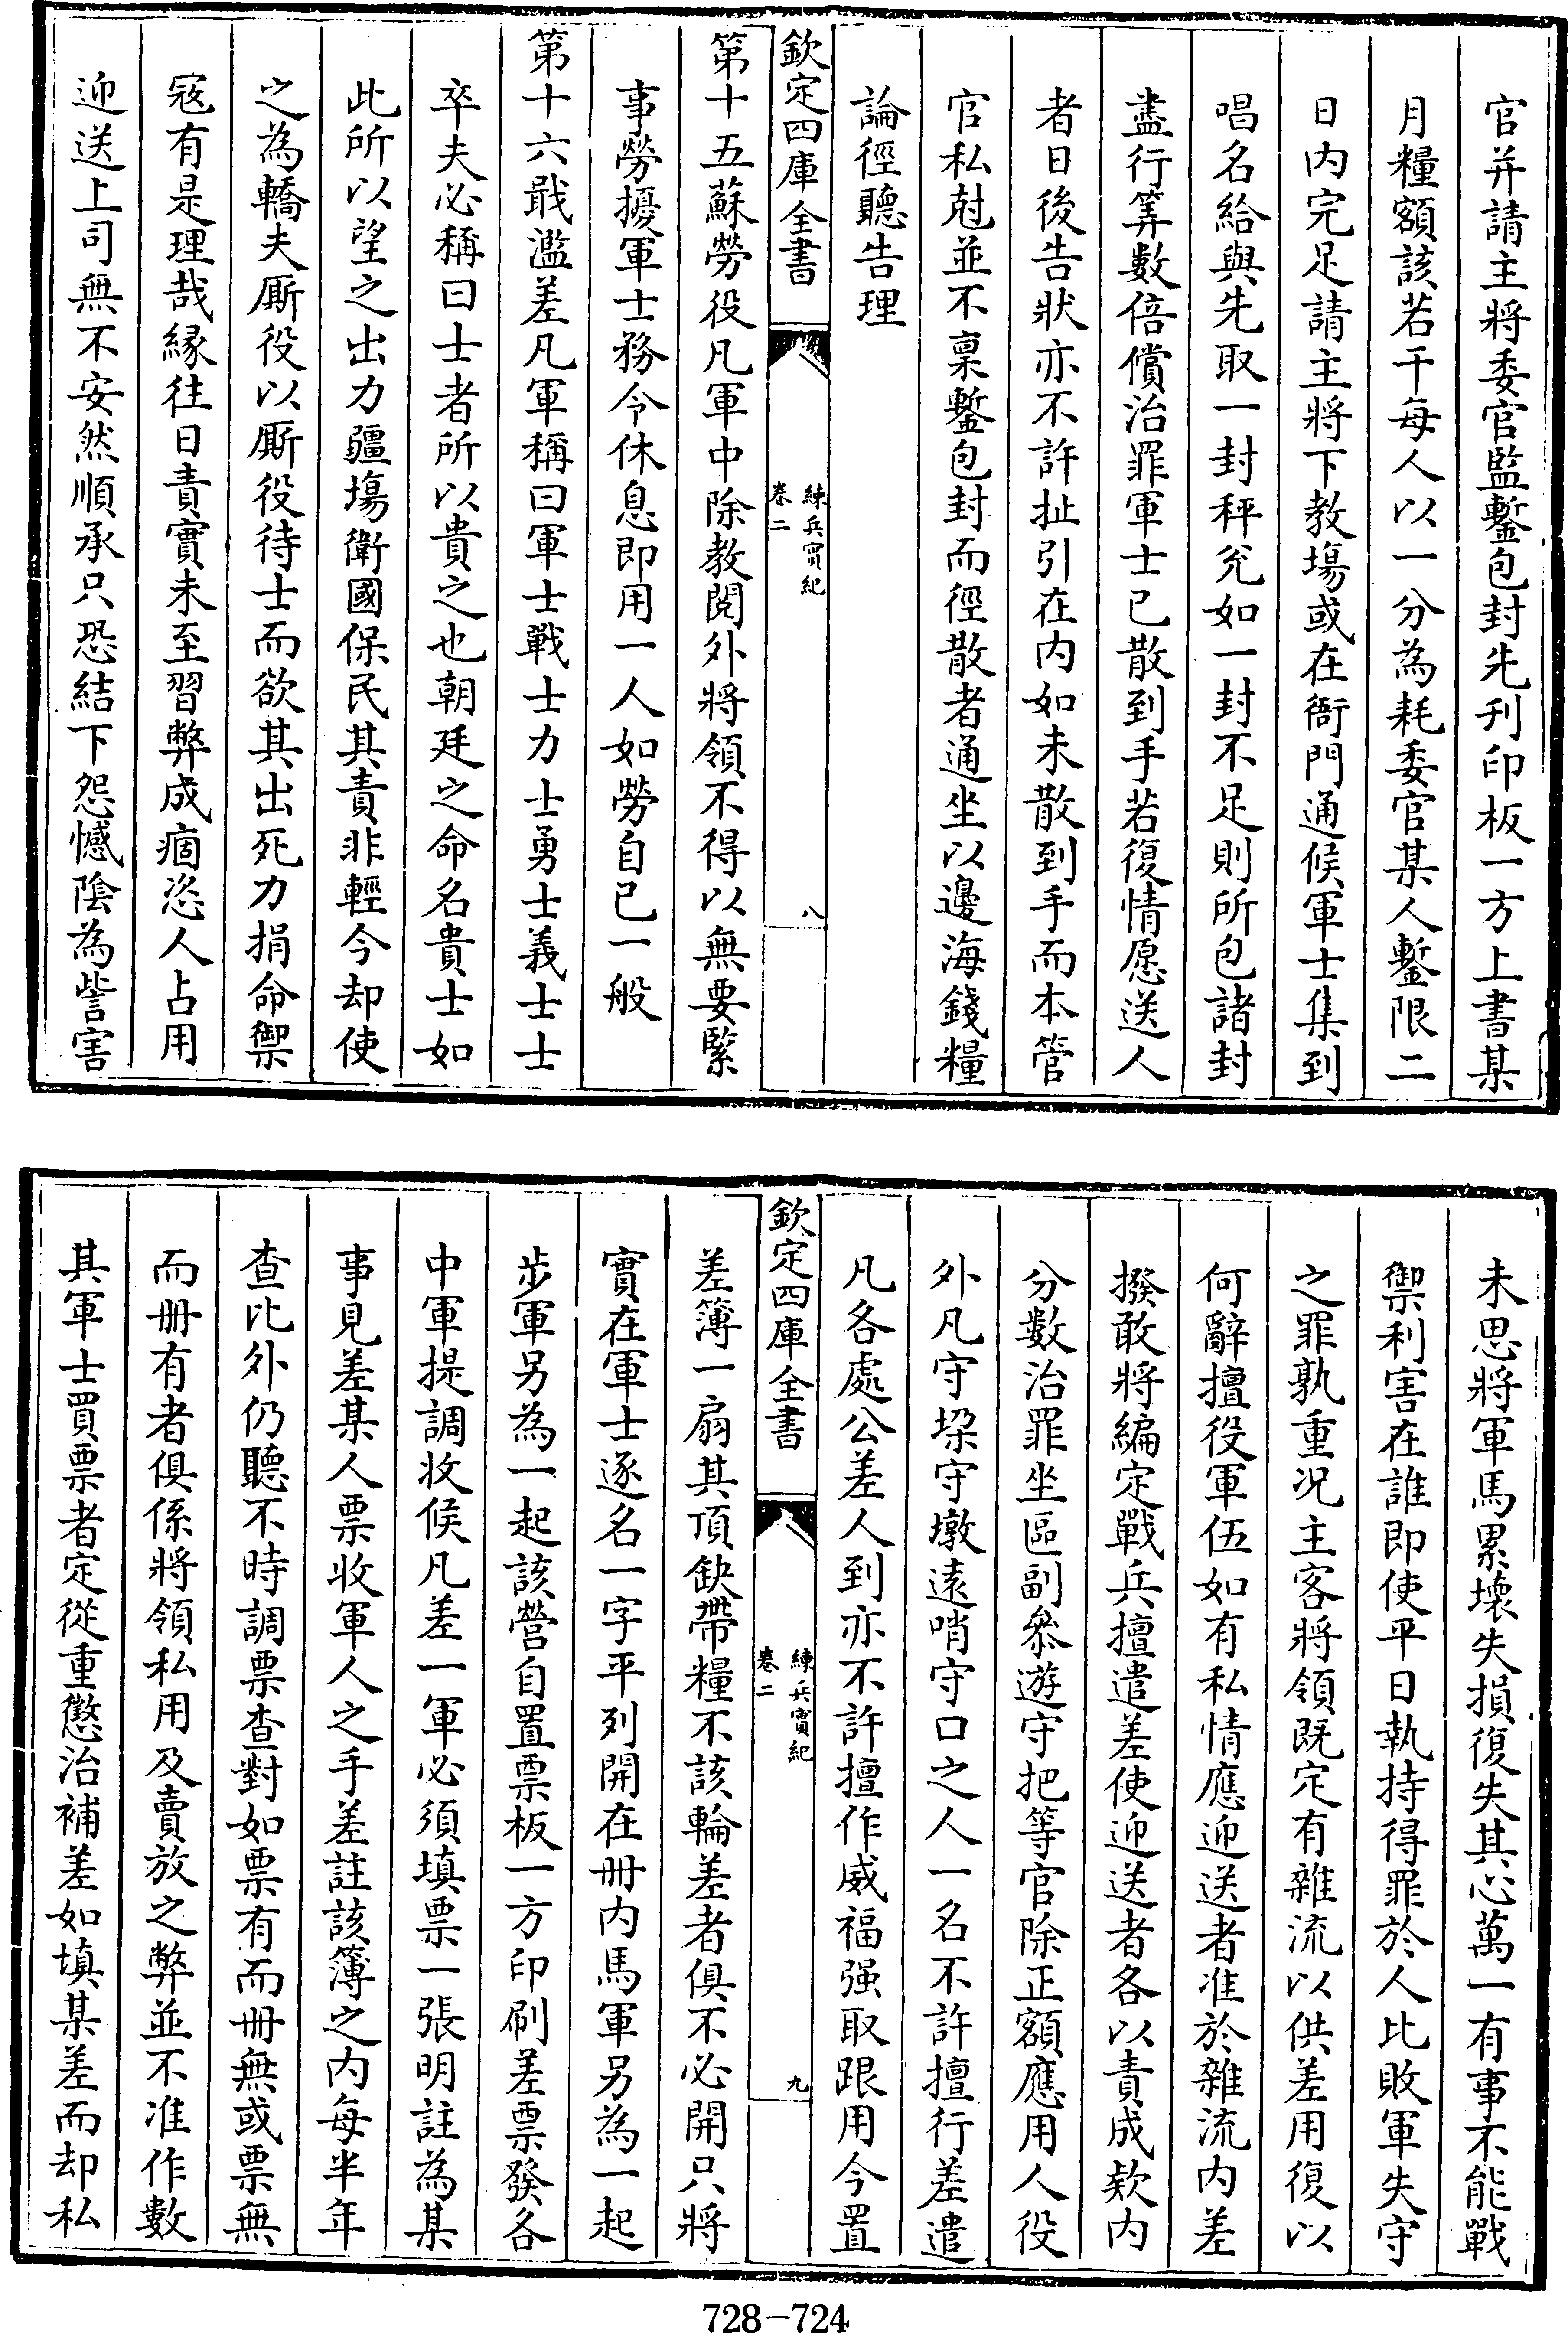 官并請主將委官監鏨包封先刋印板一方上書某
月糧額該若干每人以一分為耗委官某人鏨限二
日内完足請主將下教塲或在衙門通候軍士集到
唱名給與先取一封秤兊如一封不足則所包諸封
盡行筭數倍償治罪軍士已散到手若復情愿送人
者日後告狀亦不許扯引在内如未散到手而本管
官私尅並不稟鏨包封而徑散者通坐以邊海錢糧
論徑聽告理
欽定四庫全書
練兵實紀
卷二
八
第十五蘇勞役凡軍中除教閱外將領不得以無要緊
事勞擾軍士務令休息即用一人如勞自已一般
第十六戢濫差凡軍稱曰軍士戰士力士勇士義士士
卒夫必稱曰士者所以貴之也朝廷之命名貴士如
此所以望之出力疆塲衛國保民其責非輕今却使
之為轎夫厮役以厮役待士而欲其出死力捐命禦
宼有是理哉縁往日責實未至習弊成痼恣人占用
迎送上司無不安然順承只恐結下怨憾陰為訾害
未思將軍馬累壊失損復失其心萬一有事不能戰
禦利害在誰即使平日執持得罪於人比敗軍失守
之罪孰重况主客將領既定有雜流以供差用復以
何辭擅役軍伍如有私情應迎送者准於雜流内差
撥敢將編定戰兵擅遣差使迎送者各以責成欵内
分數治罪坐區副叅遊守把等官除正額應用人役
外凡守垜守墩遠哨守口之人一名不許擅行差遣
凡各處公差人到亦不許擅作威福强取跟用今置
欽定四庫全書
練兵實紀
卷二
九
差簿一扇其頂缺帶糧不該輪差者俱不必開只將
實在軍士逐名一字平列開在冊内馬軍另為一起
步軍另為一起該營自置票板一方印刷差票發各
中軍提調收候凡差一軍必須填票一張明註為某
事見差某人票收軍人之手差註該簿之内每半年
查比外仍聽不時調票查對如票有而冊無或票無
而冊有者俱係將領私用及賣放之弊並不准作數
其軍士買票者定從重懲治補差如填某差而却私
728-724